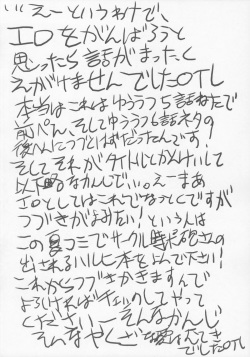 いいえーというわけで、
エロをがんばろうと
思ったら話がまったく
えがけませんでしたOTL
本当はこれはゆううつ5話ねたで
前ぺん、そしてゆううつ6話ネタの
後へんにつづくはずだったんです!
そしてそれがタイトルにかんけいして
以下略なかんじで…。えーまあ
エロとしてはこれでなっとくですが
つづきがよみたい!という人は
この夏コミでサークル時代砲さんの
出されるハルヒ本を読んで下さい!
これからつづきかきますんで
よろければチェックしてやって
くださいーそんなかんじ
そんなやくざな
でしたOTL